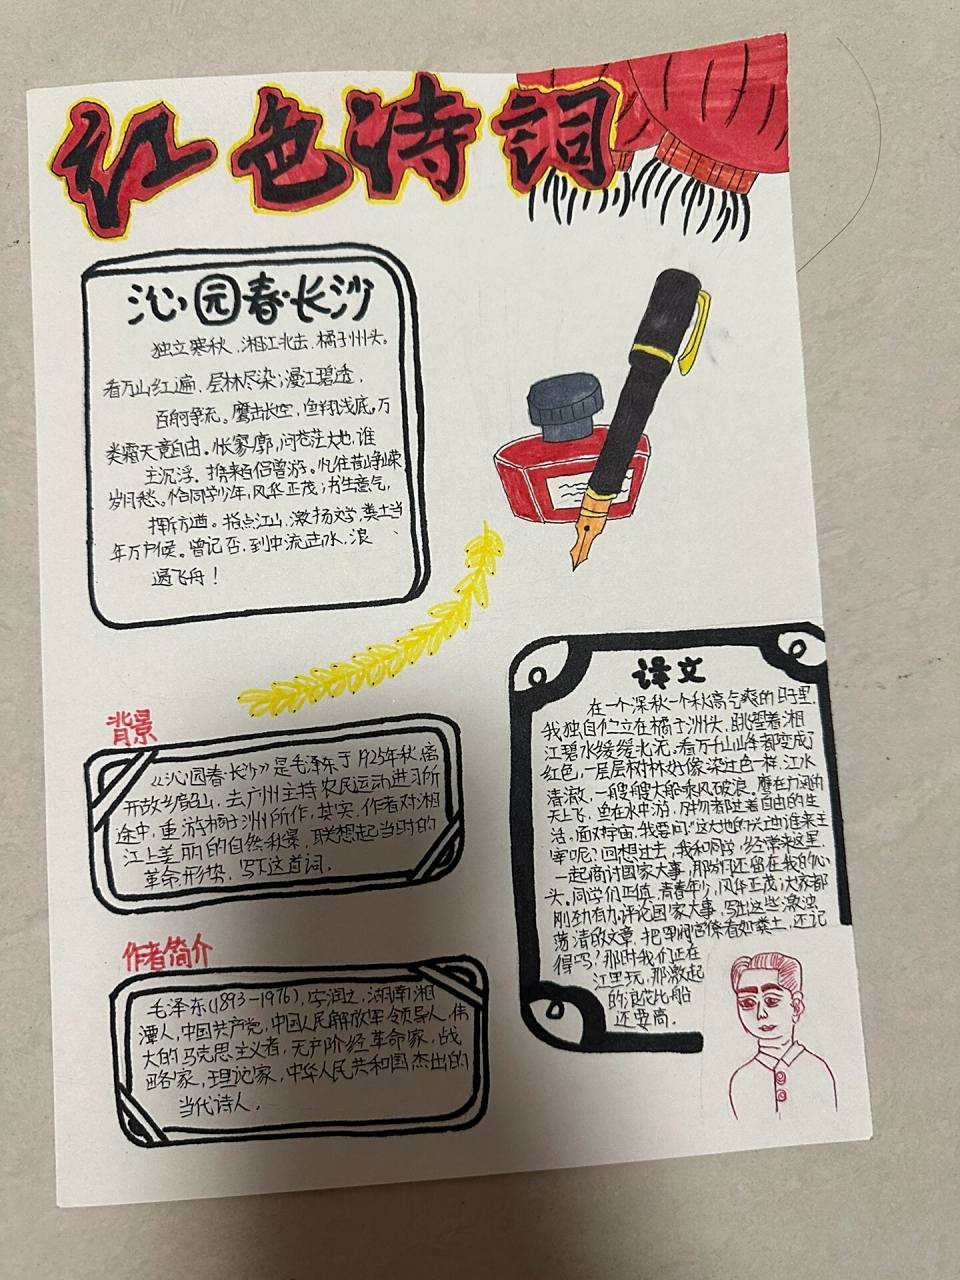 红色诗词
沁园春·长沙
独立寒秋,湘江北去,橘子州头。
看万山红遍,层林尽染;漫江碧透,
百舸争流。鹰击长空,鱼翔浅底,万
类霜天竟自由。怅寥廓,问苍茫大地,谁
主沉浮。携来百侣曾游。忆往昔峥嵘
岁月愁。恰同学少年,风华正茂;书生意气,
挥斥方遒。指点江山,激扬文字,粪土当
年万户侯。曾记否,到中流击水,浪
遏飞舟!
背景
《沁园春·长沙》是毛泽东于1925年秋,离
开故乡韶山,去广州主持农民运动进习所
途中,重游橘子洲所作,其实,作者对湘
江上美丽的自然秋景,联想起当时的
革命形势,写下这首词。
作者简介
毛泽东(1893-1976),字润之,湖南湘
潭人,中国共产党,中国人民解放军领导人,伟
大的马克思主义者,无产阶经革命家,战
略家,理论家,中华人民共和国杰出的
当代诗人。
译文
在一个深秋一个秋高气爽的日子里,
我独自伫立在橘子洲头,眺望着湘
江碧水缓缓北流,看万千山峰都变成了
红色,一层层树林好像染过色一样,江水
清澈,一艘艘大船乘风破浪。鹰在广阔的
天上飞,鱼在水中游,万物都过着自由的生
活,面对宇宙,我要问:这大地的兴由谁来主
宰呢?回想过去,我和同学,经常来这里,
一起商讨国家大事,那岁月还留在我的心
头。同学们正值青春年少,风华正茂;大家都
刚劲有力,评论国家大事,写出这些激浊
荡清的文章,把军阀官僚看如粪土,还记
得吗?那时我们正在
江里玩,那激起
的浪花比船
还要高。